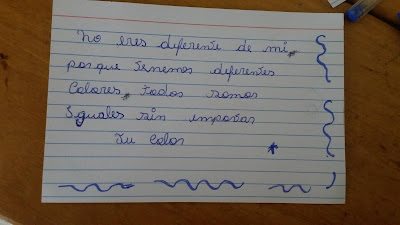 No eres diferente de mi,
porque tenemos diferentes
Colores, todos somos
Iguales sin importar
Tu Color